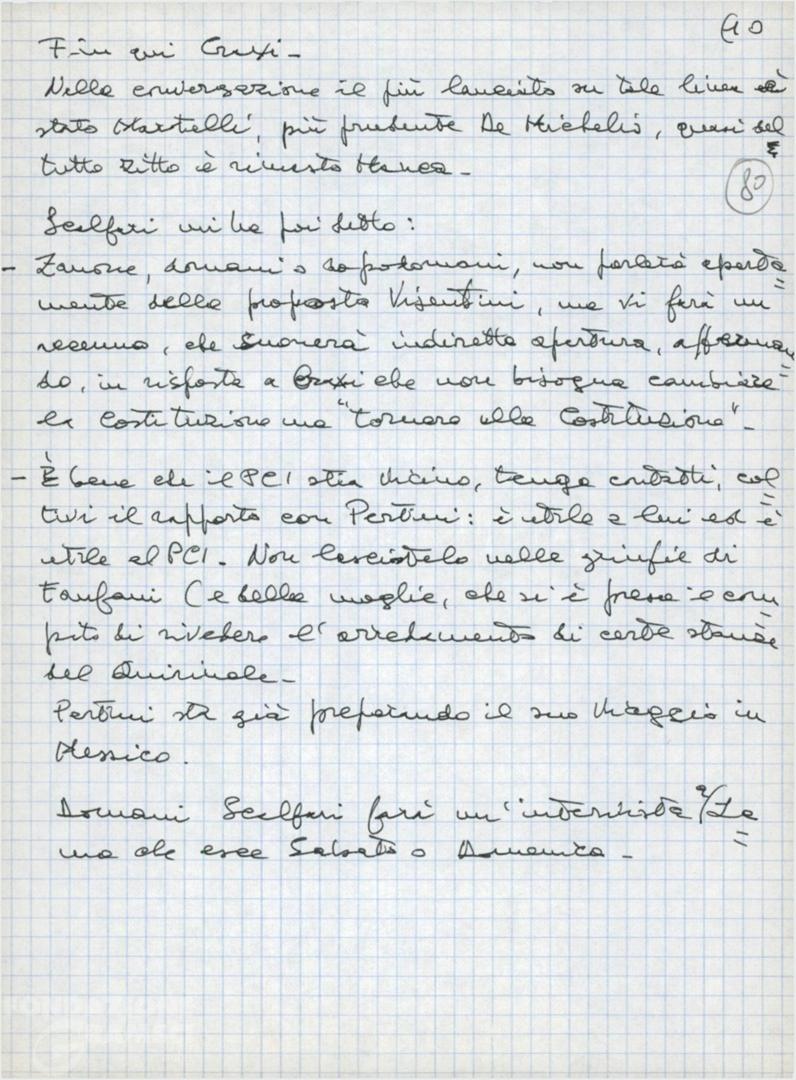 (10
Fin qui Craxi -
Nella conversazione il più lanciato su tale linea è
stato Martelli, più prudente De Michelis, quasi del
tutto zitto è rimasto Manca -
80
Scalfari mi ha poi detto:
- Zanone, domani o dopodomani, non parlerà aperta=
mente della proposta Visentini, ma vi farà un
accenno, che suonerà indiretta apertura, afferman=
do, in risposta a Craxi che non bisogna cambiare
la Costituzione ma "tornare alla Costituzione" -
- È bene che il PCI stia vicino, tenga contatti, col=
tivi il rapporto con Pertini: è utile a lui ed è
utile al PCI. Non lasciatelo nelle grinfie di
Fanfani (e della moglie, che si è presa il com=
pito di rivedere l'arredamento di certe stanze
del Quirinale -
Pertini sta già preparando il suo viaggio in
Messico.
Domani Scalfari farà un'intervista a/La=
ma che esce Sabato o Domenica -
FONDAZIONE
GRAMSCI